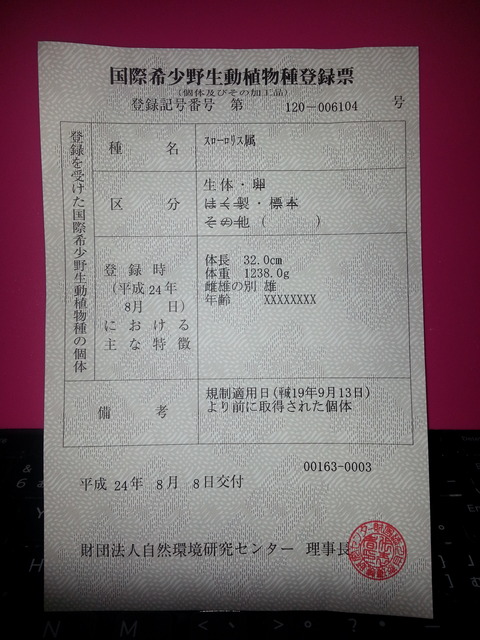 国際希少野生動植物種登録票
(個体及びその加工品)
登録記号番号 第 120-006104 号
登録を受けた国際希少野生動植物種の個体
種 名 スローロリス属
区 分 生体・卵
はく製・標本
その他 ( )
登録時
(平成24年
8月 日)
における
主な特徴
体長 32.0cm
体重 1238.0g
雌雄の別 雄
年齢 XXXXXXXX
備 考
規制適用日(平成19年9月13日)
より前に取得された個体
00163-0003
平成 24年 8月 8日交付
財団法人自然環境研究センター 理事長